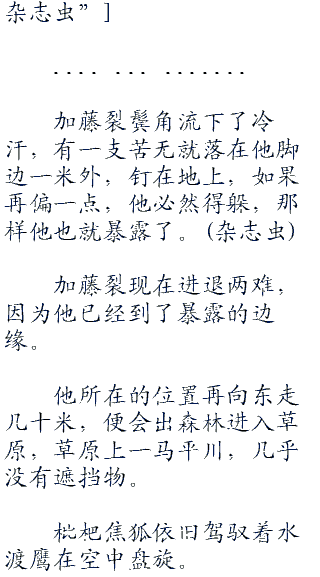 杂志虫”]
.... ... .......
加藤裂鬓角流下了冷
汗，有一支苦无就落在他脚
边一米外，钉在地上，如果
再偏一点，他必然得躲，那
样他也就暴露了。(杂志虫)
加藤裂现在进退两难，
因为他已经到了暴露的边
缘。
他所在的位置再向东走
几十米，便会出森林进入草
原，草原上一马平川，几乎
没有遮挡物。
枇杷焦狐依旧驾驭着水
渡鹰在空中盘旋。